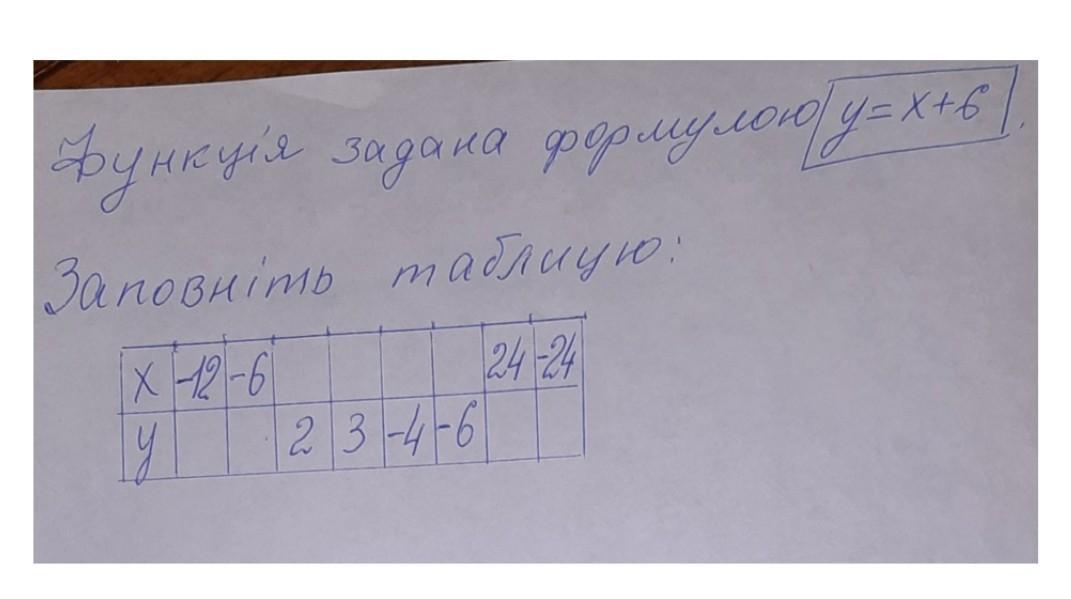 Функція задана формулою y=x+6.
Заповніть таблицю:
x -12 -6 24 -24
y 2 3 -4 -6